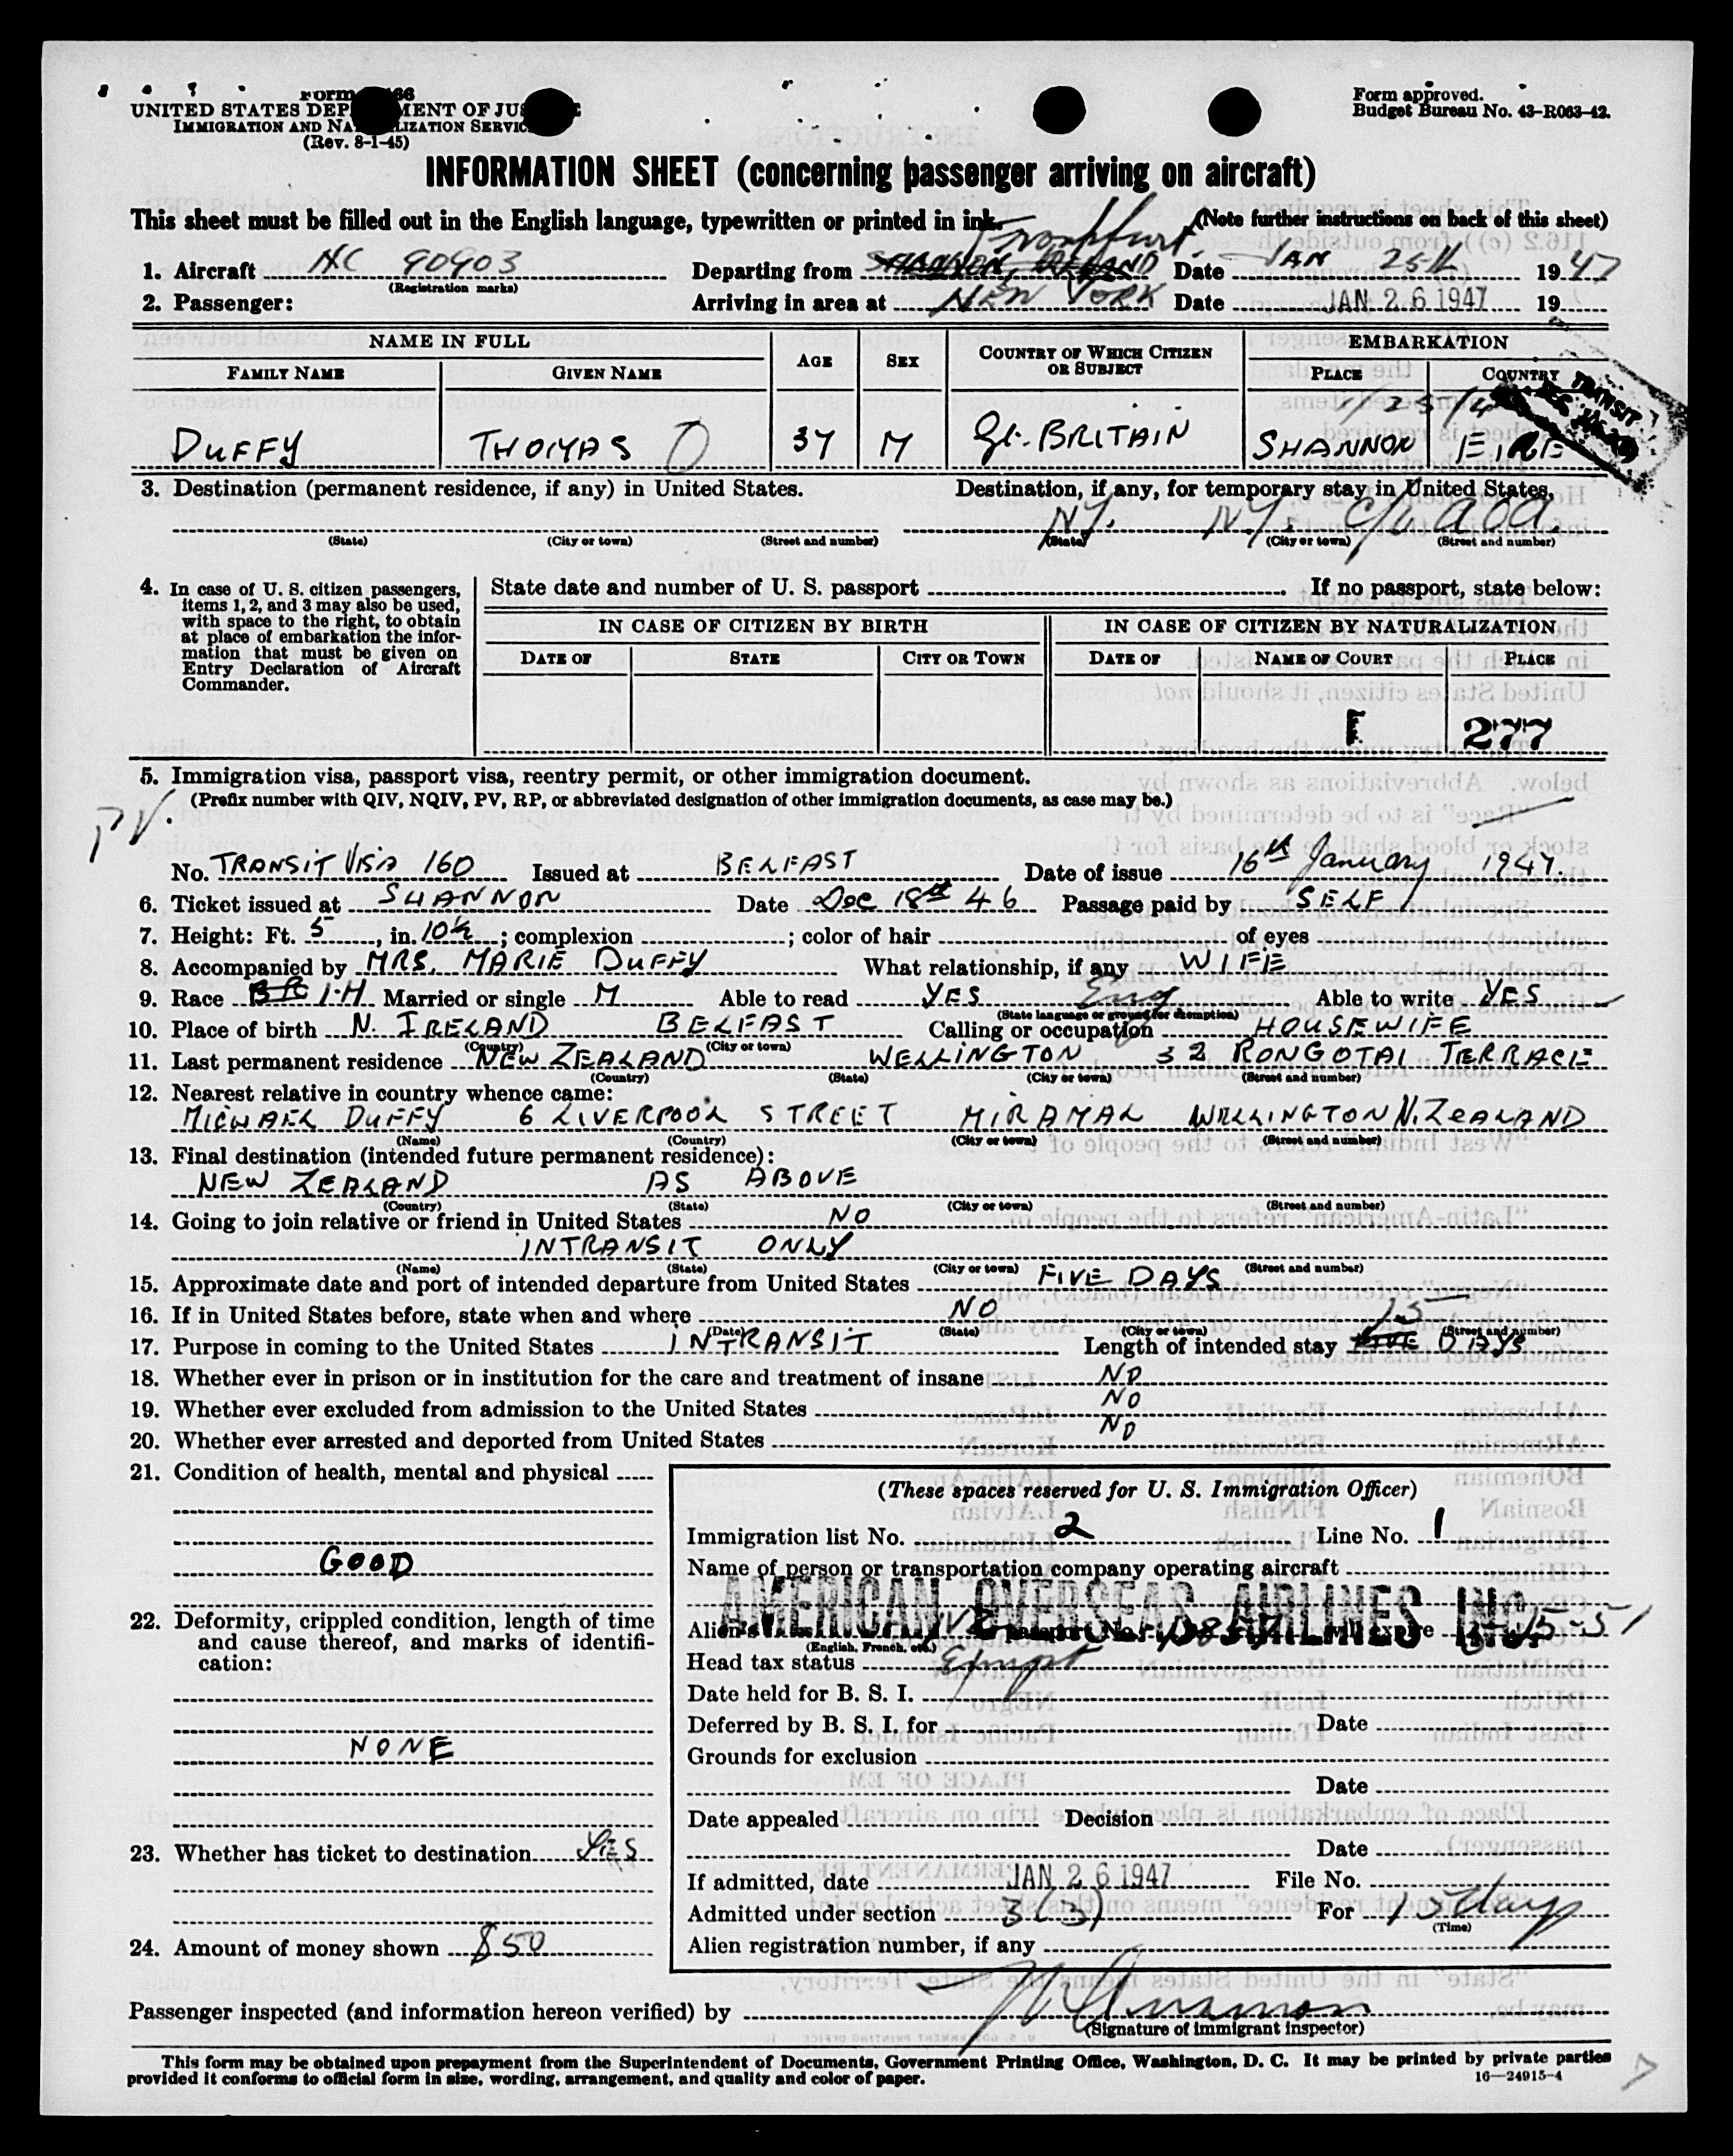 Form 66
UNITED STATES DEP MENT OF JUS
IMMIGRATION AND NA LIZATION SERVIC
(Rev. 8-1-45)
Form approved.
Budget Bureau No. 43-R063-42.
INFORMATION SHEET (concerning passenger arriving on aircraft)
This sheet must be filled out in the English language, typewritten or printed in ink. (Note further instructions on back of this sheet)
Frankfurt
1. Aircraft NC 90903 Departing from SHANNON, IRELAND Date JAN 25th 1947
(Registration marks)
2. Passenger: Arriving in area at NEW YORK Date JAN 26 1947 19
NAME IN FULL AGE SEX COUNTRY OF WHICH CITIZEN OR SUBJECT EMBARKATION
FAMILY NAME GIVEN NAME PLACE COUNTRY
TRANSIT
1/25/4
DUFFY THOMAS O 37 M Gt. BRITAIN SHANNON EIRE
3. Destination (permanent residence, if any) in United States. Destination, if any, for temporary stay in United States,
NY. NY. c/o aoa.
(State) (City or town) (Street and number) (State) (City or town) (Street and number)
4. In case of U. S. citizen passengers, items 1, 2, and 3 may also be used, with space to the right, to obtain at place of embarkation the information that must be given on Entry Declaration of Aircraft Commander.
State date and number of U. S. passport . If no passport, state below:
IN CASE OF CITIZEN BY BIRTH IN CASE OF CITIZEN BY NATURALIZATION
DATE OF STATE CITY OR TOWN DATE OF NAME OF COURT PLACE
277
5. Immigration visa, passport visa, reentry permit, or other immigration document.
(Prefix number with QIV, NQIV, PV, RP, or abbreviated designation of other immigration documents, as case may be.)
PV.
No. TRANSIT VISA 160 Issued at BELFAST Date of issue 16th January 1947.
6. Ticket issued at SHANNON Date Dec 18th 46 Passage paid by SELF
7. Height: Ft. 5, in. 10½; complexion ; color of hair of eyes
8. Accompanied by MRS. MARIE DUFFY What relationship, if any WIFE
9. Race BR I-H Married or single M Able to read YES Eng Able to write YES
(State language or ground for exemption)
10. Place of birth N. IRELAND BELFAST Calling or occupation HOUSEWIFE
(Country) (City or town)
11. Last permanent residence NEW ZEALAND WELLINGTON 32 RONGOTAI TERRACE
(Country) (State) (City or town) (Street and number)
12. Nearest relative in country whence came:
MICHAEL DUFFY 6 LIVERPOOL STREET MIRAMAR WELLINGTON N. ZEALAND
(Name) (Country) (City or town) (Street and number)
13. Final destination (intended future permanent residence):
NEW ZEALAND AS ABOVE
(Country) (State) (City or town) (Street and number)
14. Going to join relative or friend in United States NO
INTRANSIT ONLY
(Name) (State) (City or town) (Street and number)
15. Approximate date and port of intended departure from United States FIVE DAYS
16. If in United States before, state when and where NO
(Date) (State) (City or town) (Street and number)
15
17. Purpose in coming to the United States INTRANSIT Length of intended stay FIVE DAYS
18. Whether ever in prison or in institution for the care and treatment of insane NO
19. Whether ever excluded from admission to the United States NO
20. Whether ever arrested and deported from United States NO
21. Condition of health, mental and physical
GOOD
22. Deformity, crippled condition, length of time and cause thereof, and marks of identification:
NONE
23. Whether has ticket to destination YES
24. Amount of money shown $50
(These spaces reserved for U. S. Immigration Officer)
Immigration list No. 2 Line No. 1
Name of person or transportation company operating aircraft
AMERICAN OVERSEAS AIRLINES INC.
Alien's 15-51
(English, French, etc.)
Head tax status Exmpt
Date held for B. S. I.
Deferred by B. S. I. for Date
Grounds for exclusion
Date
Date appealed Decision
Date
If admitted, date JAN 26 1947 File No.
Admitted under section 3(3) For 15 days
(Time)
Alien registration number, if any
Passenger inspected (and information hereon verified) by
(Signature of immigrant inspector)
This form may be obtained upon prepayment from the Superintendent of Documents, Government Printing Office, Washington, D. C. It may be printed by private parties
provided it conforms to official form in size, wording, arrangement, and quality and color of paper. 16—24915-4